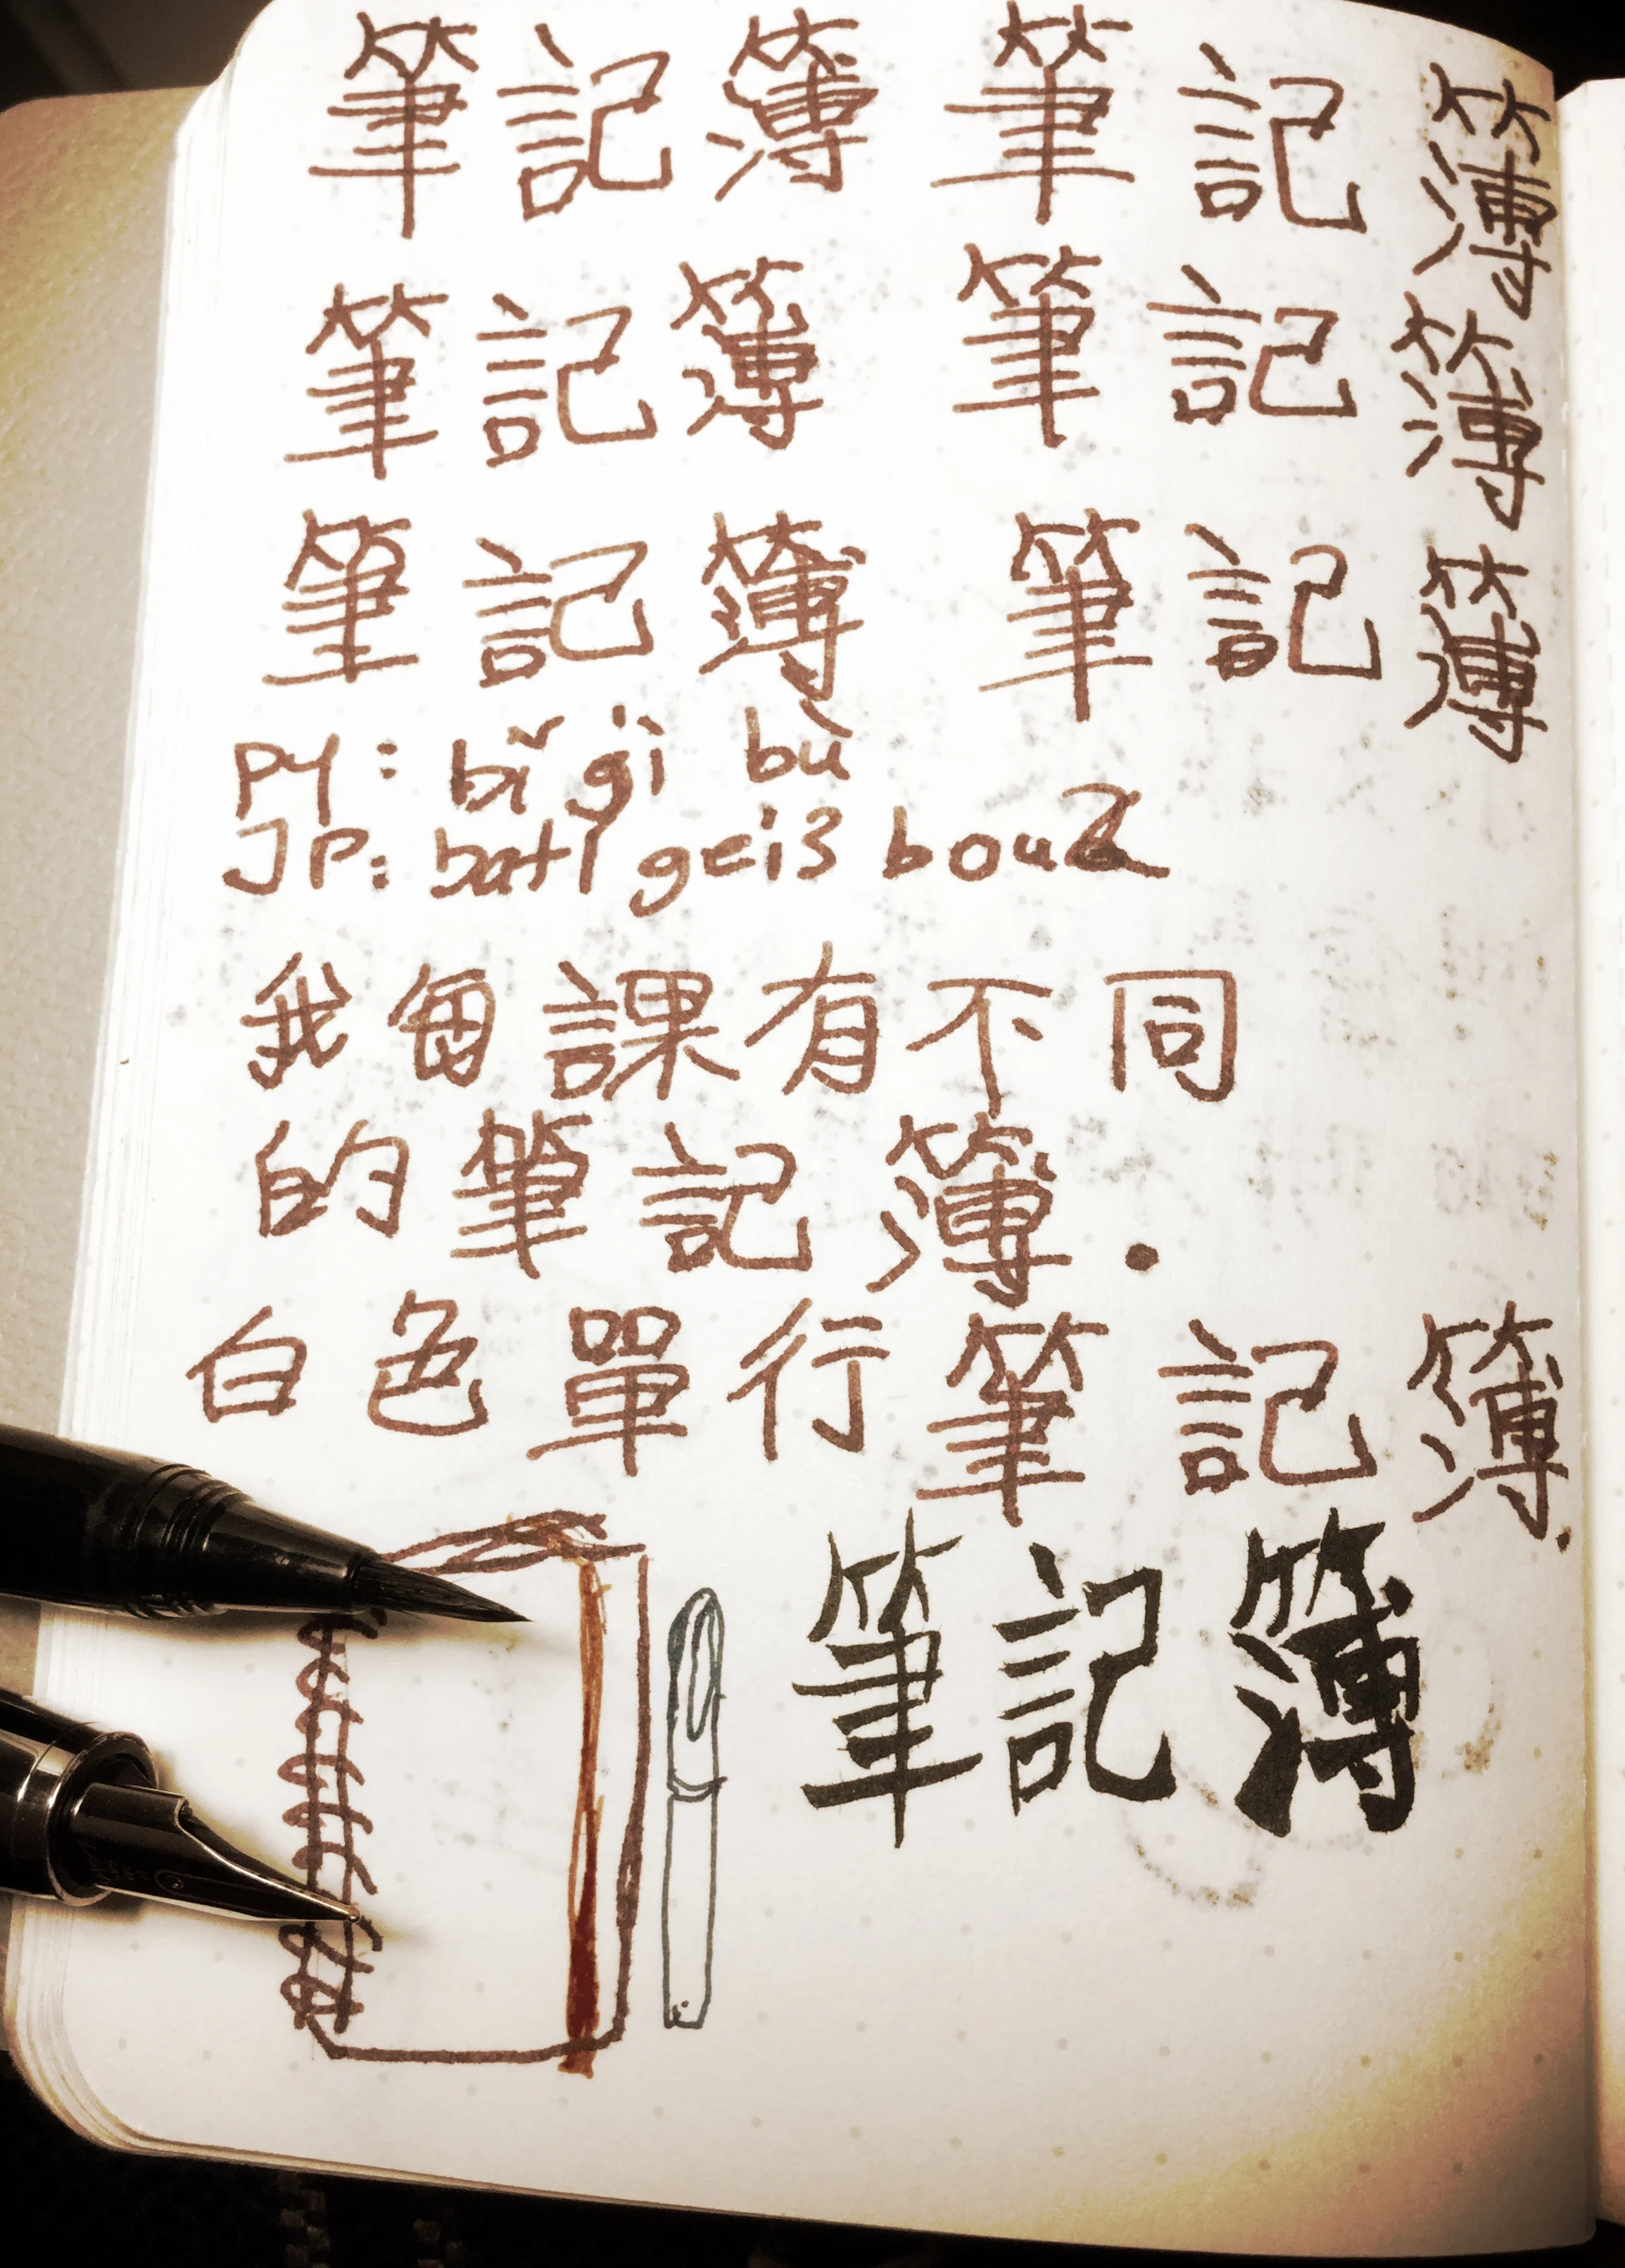 筆記簿 筆記簿
筆記簿 筆記簿
筆記簿 筆記簿
PY: bǐ gì bù
JP: bat1 gei3 bou2
我每課有不同
的筆記簿.
白色單行筆記簿.
筆記簿